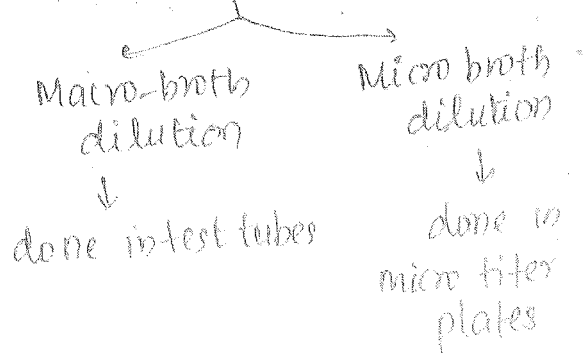 Macro-broth
dilution
done in test tubes
Micro broth
dilution
done in
micro titer
plates